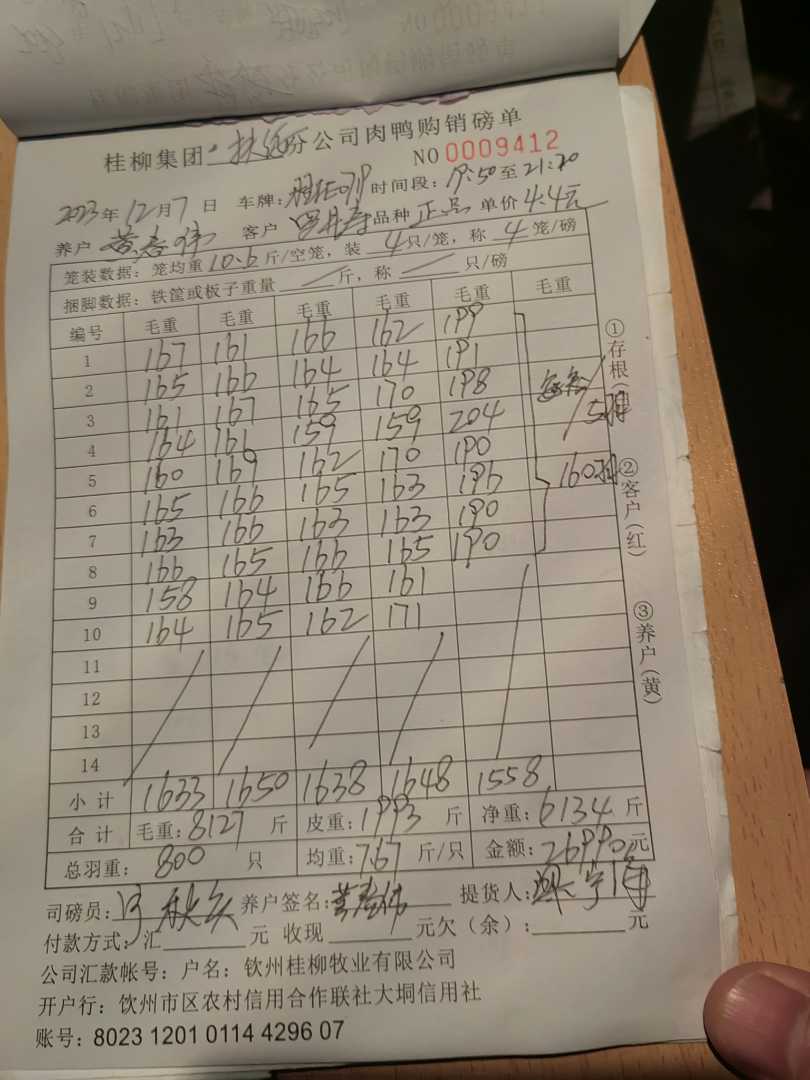 桂柳集团 分公司肉鸭购销磅单
NO 0009412
2023年12月7日 车牌: 时间段:19:50至21:20
养户 黄春伟 客户 品种 正品 单价 4.4元
笼装数据:笼均重 10.6 斤/空笼,装 4 只/笼,称 4 笼/磅
捆脚数据:铁筐或板子重量 斤,称 只/磅
编号 毛重 毛重 毛重 毛重 毛重 毛重
1 167 161 166 162 199
2 165 166 164 164 191
3 161 167 165 170 198
4 164 161 159 159 204
5 160 169 162 170 190
6 165 166 165 163 196
7 163 166 163 163 190
8 166 165 166 165 190
9 158 164 166 161
10 164 165 162 171
11
12
13
14
5羽
160羽
小计 1633 1650 1638 1648 1558
合计 毛重:8127 斤 皮重:1993 斤 净重:6134 斤
总羽重: 800 只 均重:7.67 斤/只 金额:26990元
司磅员: 养户签名:黄春伟 提货人:
付款方式:汇 元 收现 元欠(余): 元
公司汇款帐号:户名:钦州桂柳牧业有限公司
开户行:钦州市区农村信用合作联社大垌信用社
账号:8023 1201 0114 4296 07
①存根(白)
②客户(红)
③养户(黄)